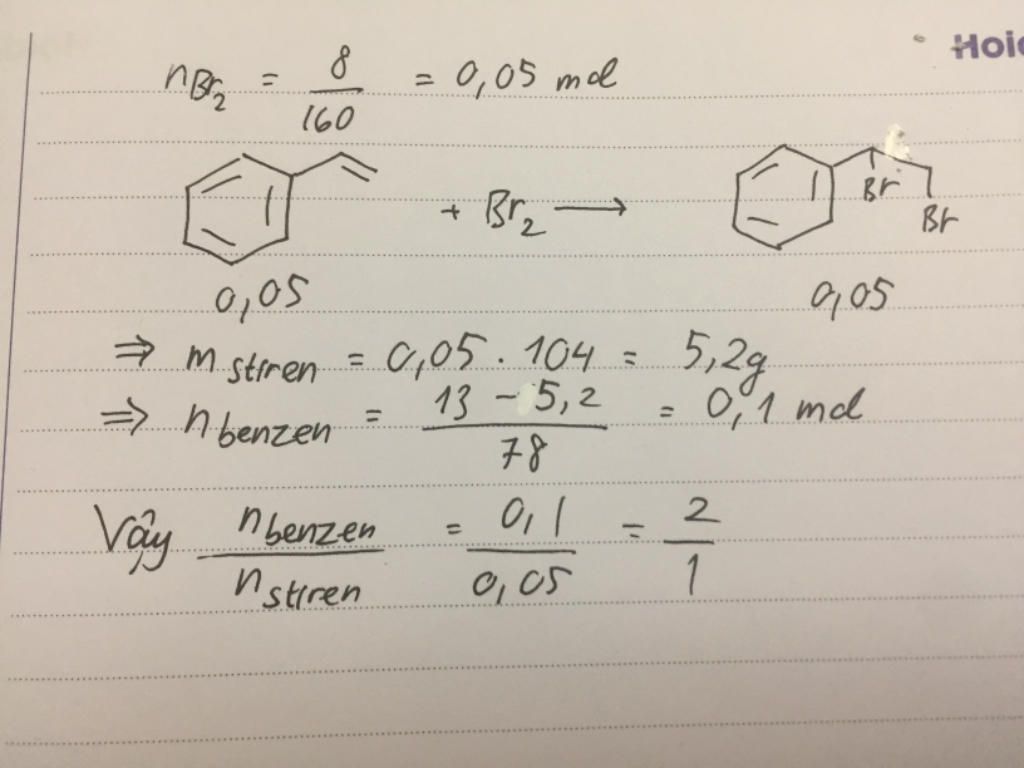 Hoi
nBr2 = 8/160 = 0,05 mol
+ Br2 → Br Br
0,05 0,05
⇒ m stiren = 0,05 . 104 = 5,2g
⇒ n benzen = (13 - 5,2)/78 = 0,1 mol
Vậy n benzen/n stiren = 0,1/0,05 = 2/1